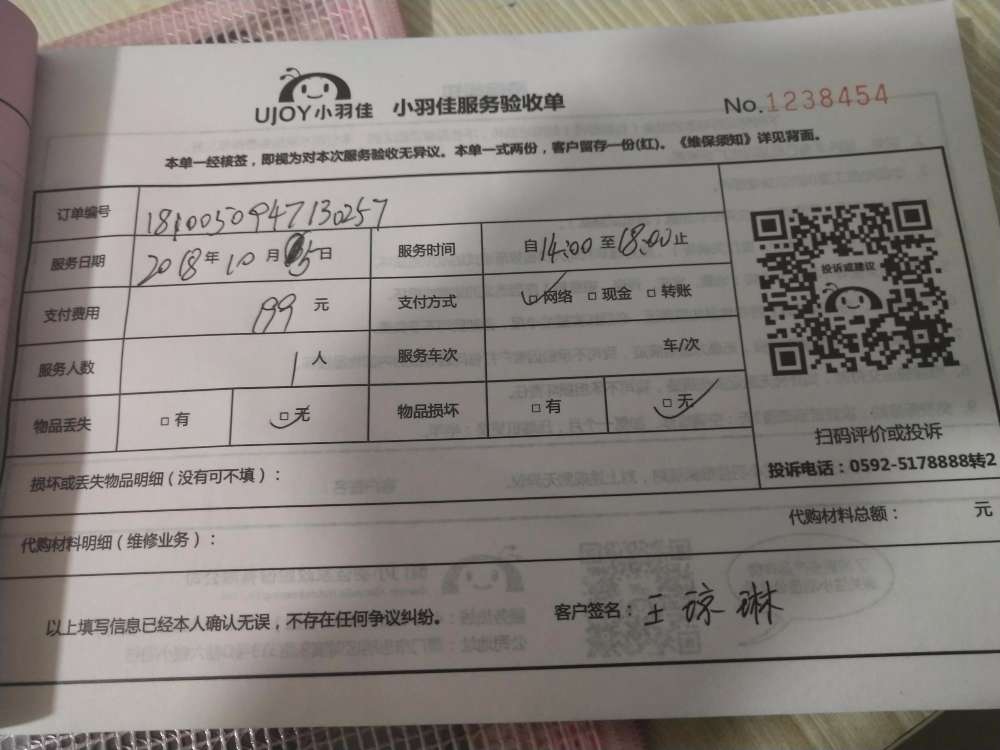 UJOY小羽佳 小羽佳服务验收单 No.1238454
本单一经核签，即视为对本次服务验收无异议。本单一式两份，客户留存一份(红)。《维保须知》详见背面。
订单编号 1810050947130257
服务日期 2018年10月05日 服务时间 自14:00至18:00止
支付费用 199元 支付方式 □网络 □现金 □转账
服务人数 1人 服务车次 车/次
物品丢失 □有 □无 物品损坏 □有 □无
投诉或建议
扫码评价或投诉
投诉电话：0592-5178888转2
损坏或丢失物品明细（没有可不填）：
代购材料明细（维修业务）： 代购材料总额： 元
以上填写信息已经本人确认无误，不存在任何争议纠纷。 客户签名：王琼琳